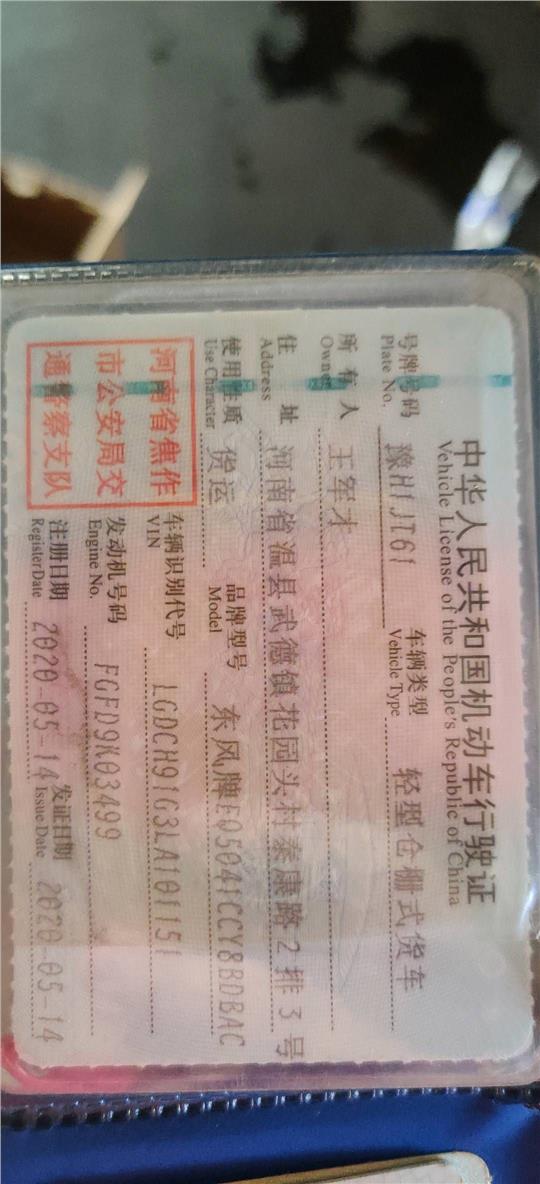 中华人民共和国机动车行驶证
Vehicle License of the People's Republic of China
号牌号码 豫H1JT61 车辆类型 轻型仓栅式货车
Plate No. Vehicle Type
所有人 王军才
Owner
住址 河南省温县武德镇花园头村泰康路2排3号
Address
使用性质 货运 品牌型号 东风牌EQ5041CCY8BDBAC
Use Character Model
河南省焦作
市公安局交
通警察支队
车辆识别代号 LGDCH91G3LA101151
VIN
发动机号码 FGFD9K03499
Engine No.
注册日期 2020-05-14 发证日期 2020-05-14
Register Date Issue Date